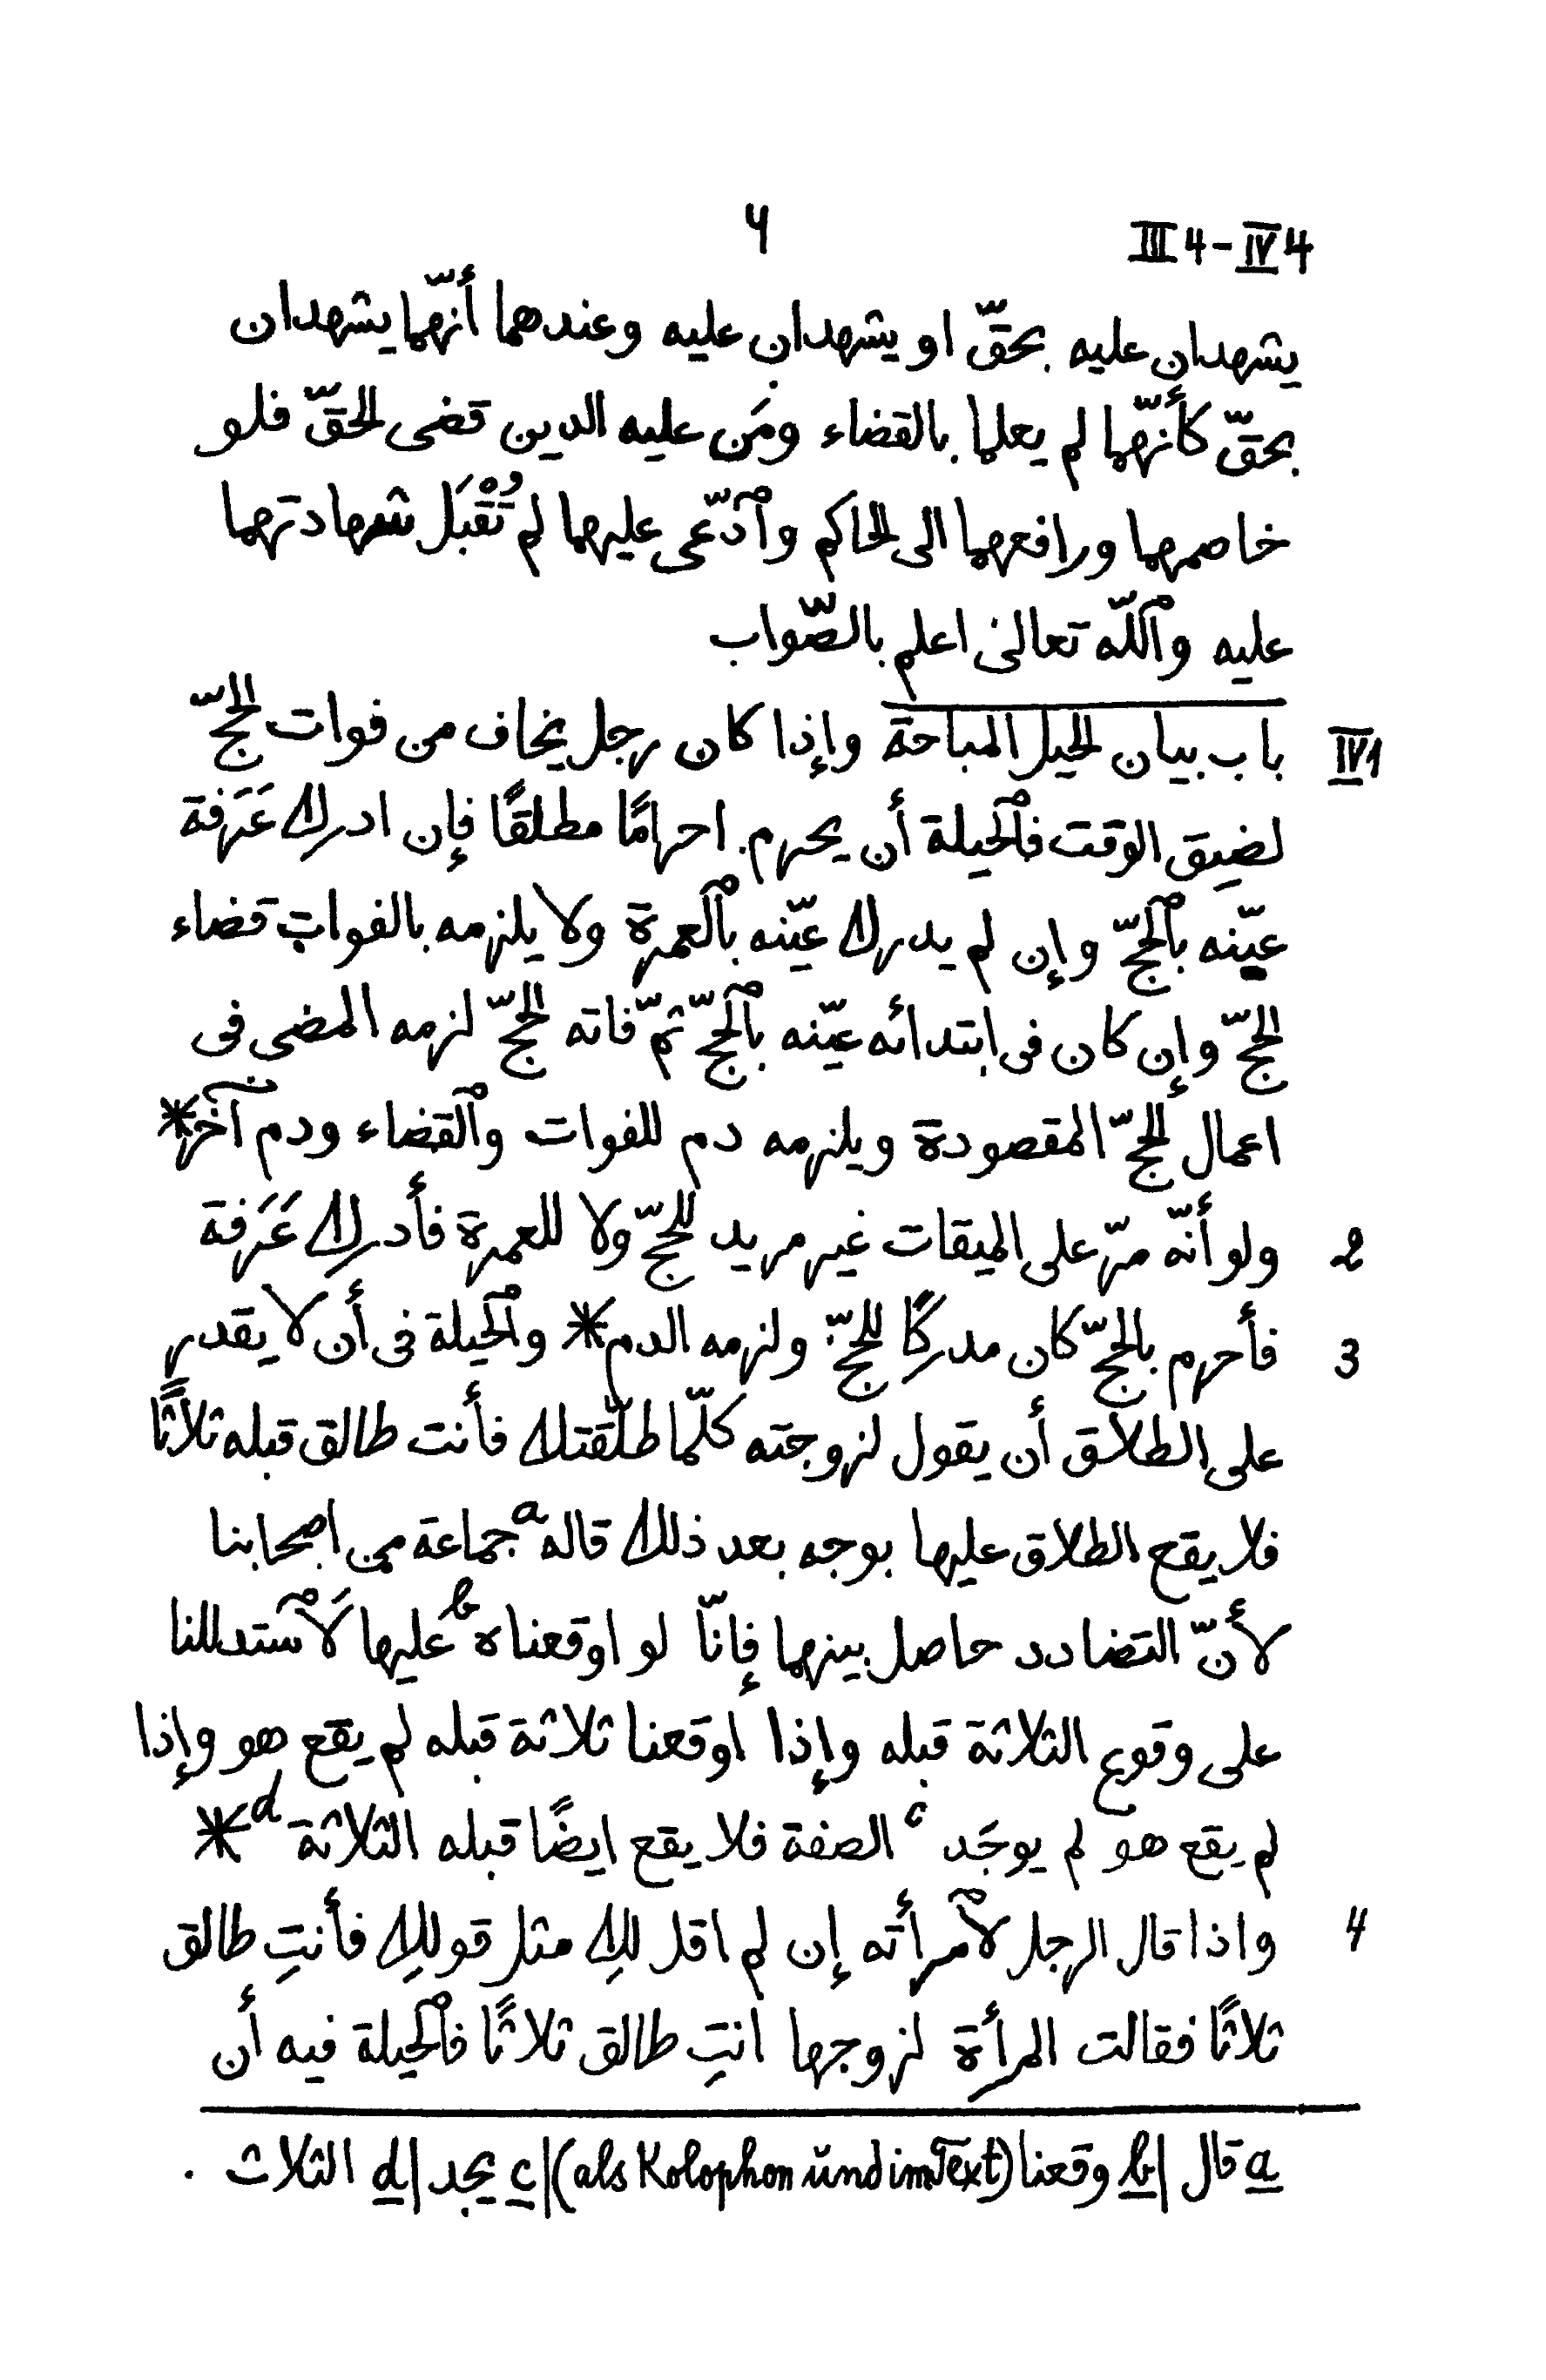 4
III 4 - IV 4
يشهدان عليه بحقّ او يشهدان عليه وعندهما أنّهما يشهدان
بحقّ كأنّهما لم يعلما بالقضاء ومَن عليه الدين قضى الحقّ فلو
خاصمهما ورافعهما الى الحاكم وٱدّعى عليهما لم تُقْبَل شهادتهما
عليه وٱللّه تعالى اعلم بالصّواب
IV 1 باب بيان الحيل المباحة وإذا كان رجل يخاف من فوات الحجّ
لضيق الوقت فٱلحيلة أن يحرم احرامًا مطلقًا فإن ادرك عَرَفة
عيّنه بٱلحجّ وإن لم يدرك عيّنه بٱلعمرة ولا يلزمه بالفوات قضاء
الحجّ وإن كان فى ابتدائه عيّنه بٱلحجّ ثمّ فاته الحجّ لزمه المضى فى
اعمال الحجّ المقصودة ويلزمه دم للفوات وٱلقضاء ودم آخر*
2 ولو أنّه مرّ على الميقات غير مريد للحجّ ولا للعمرة فأدرك عَرَفة
3 فأحرم بالحجّ كان مدركًا للحجّ ولزمه الدم* وٱلحيلة فى أن لا يقدر
على الطلاق أن يقول لزوجته كلّما طلّقتك فأنت طالق قبله ثلاثًا
فلا يقع الطلاق عليها بوجه بعد ذلك قاله a جماعة من اصحابنا
لأنّ التضادد حاصل بينهما فإنّا لو اوقعناه b عليها لَٱستدللنا
على وقوع الثلاثة قبله وإذا اوقعنا ثلاثة قبله لم يقع هو وإذا
لم يقع هو لم يوجَد c الصفة فلا يقع ايضًا قبله الثلاثة d *
4 واذا قال الرجل لٱمرأته إن لم اقل لكِ مثل قولكِ فأنتِ طالق
ثلاثًا فقالت المرأة لزوجها انتِ طالق ثلاثًا فٱلحيلة فيه أن
a قال | b وقعنا (als Kolophon und im Text) | c يجد | d الثلاث .